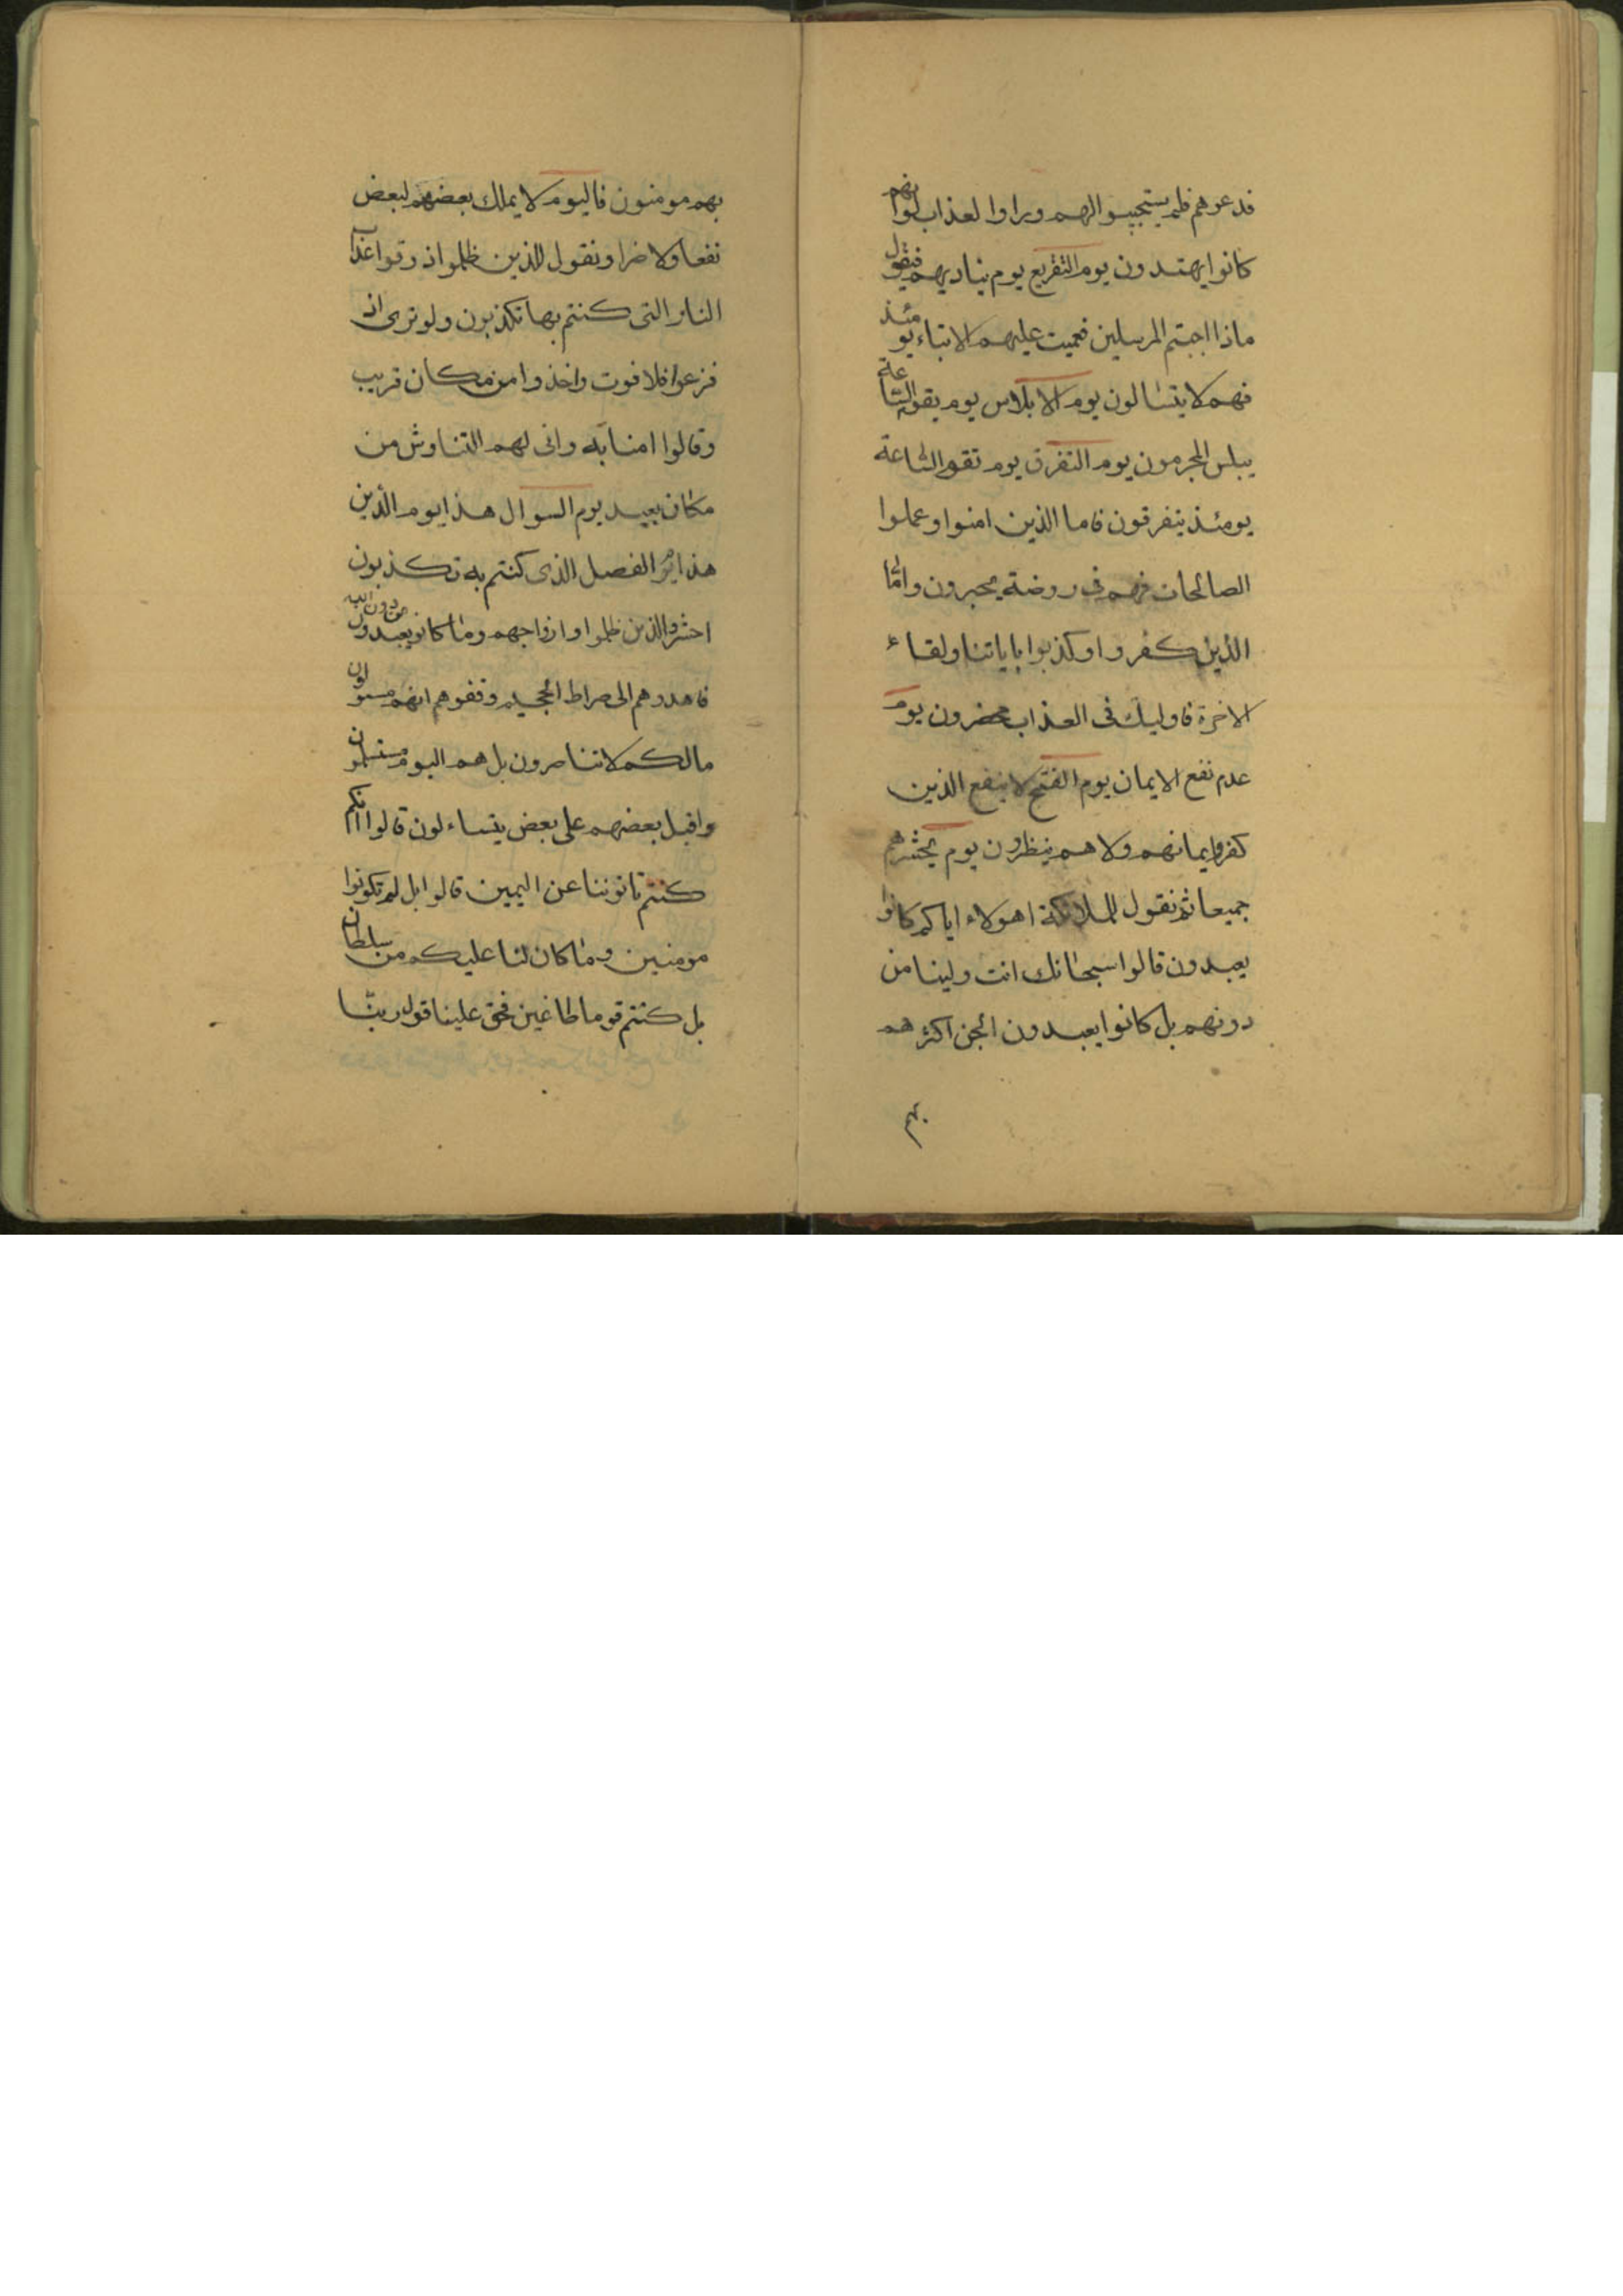 فدعوهم فلم يستجيبوا لهم وراوا العذاب لو انهم
كانوا يهتدون يوم التقريع يوم يناديهم فيقول
ماذا اجبتم المرسلين فعميت عليهم الانباء يومئذ
فهم لا يتسالون يوم الابلاس يوم يقوم الساعة
يبلس المجرمون يوم التفرق يوم تقوم الساعة
يومئذ يتفرقون فاما الذين امنوا وعملوا
الصالحات فهم في روضة يحبرون واما
الذين كفروا وكذبوا باياتنا ولقاء
الاخرة فاوليك في العذاب محضرون يوم
عدم نفع الايمان يوم الفتح لا ينفع الذين
كفروا ايمانهم ولا هم ينظرون يوم يحشرهم
جميعا ثم نقول للملائكة اهولاء اياكم كانوا
يعبدون قالوا سبحانك انت ولينا من
دونهم بل كانوا يعبدون الجن اكثرهم
بهم
بهم مومنون فاليوم لا يملك بعضهم لبعض
نفعا ولا ضرا ونقول للذين ظلموا ذوقوا عذاب
النار التي كنتم بها تكذبون ولو ترى اذ
فزعوا فلا فوت واخذوا من مكان قريب
وقالوا امنا به وانى لهم التناوش من
مكان بعيد يوم السوال هذا يوم الدين
هذا يوم الفصل الذي كنتم به تكذبون
احشروا الذين ظلموا وازواجهم وما كانوا يعبدون من دون الله
فاهدوهم الى صراط الجحيم وقفوهم انهم مسئولون
مالكم لا تناصرون بل هم اليوم مستسلمون
واقبل بعضهم على بعض يتساءلون قالوا انكم
كنتم تاتوننا عن اليمين قالوا بل لم تكونوا
مومنين وما كان لنا عليكم من سلطان
بل كنتم قوما طاغين فحق علينا قول ربنا